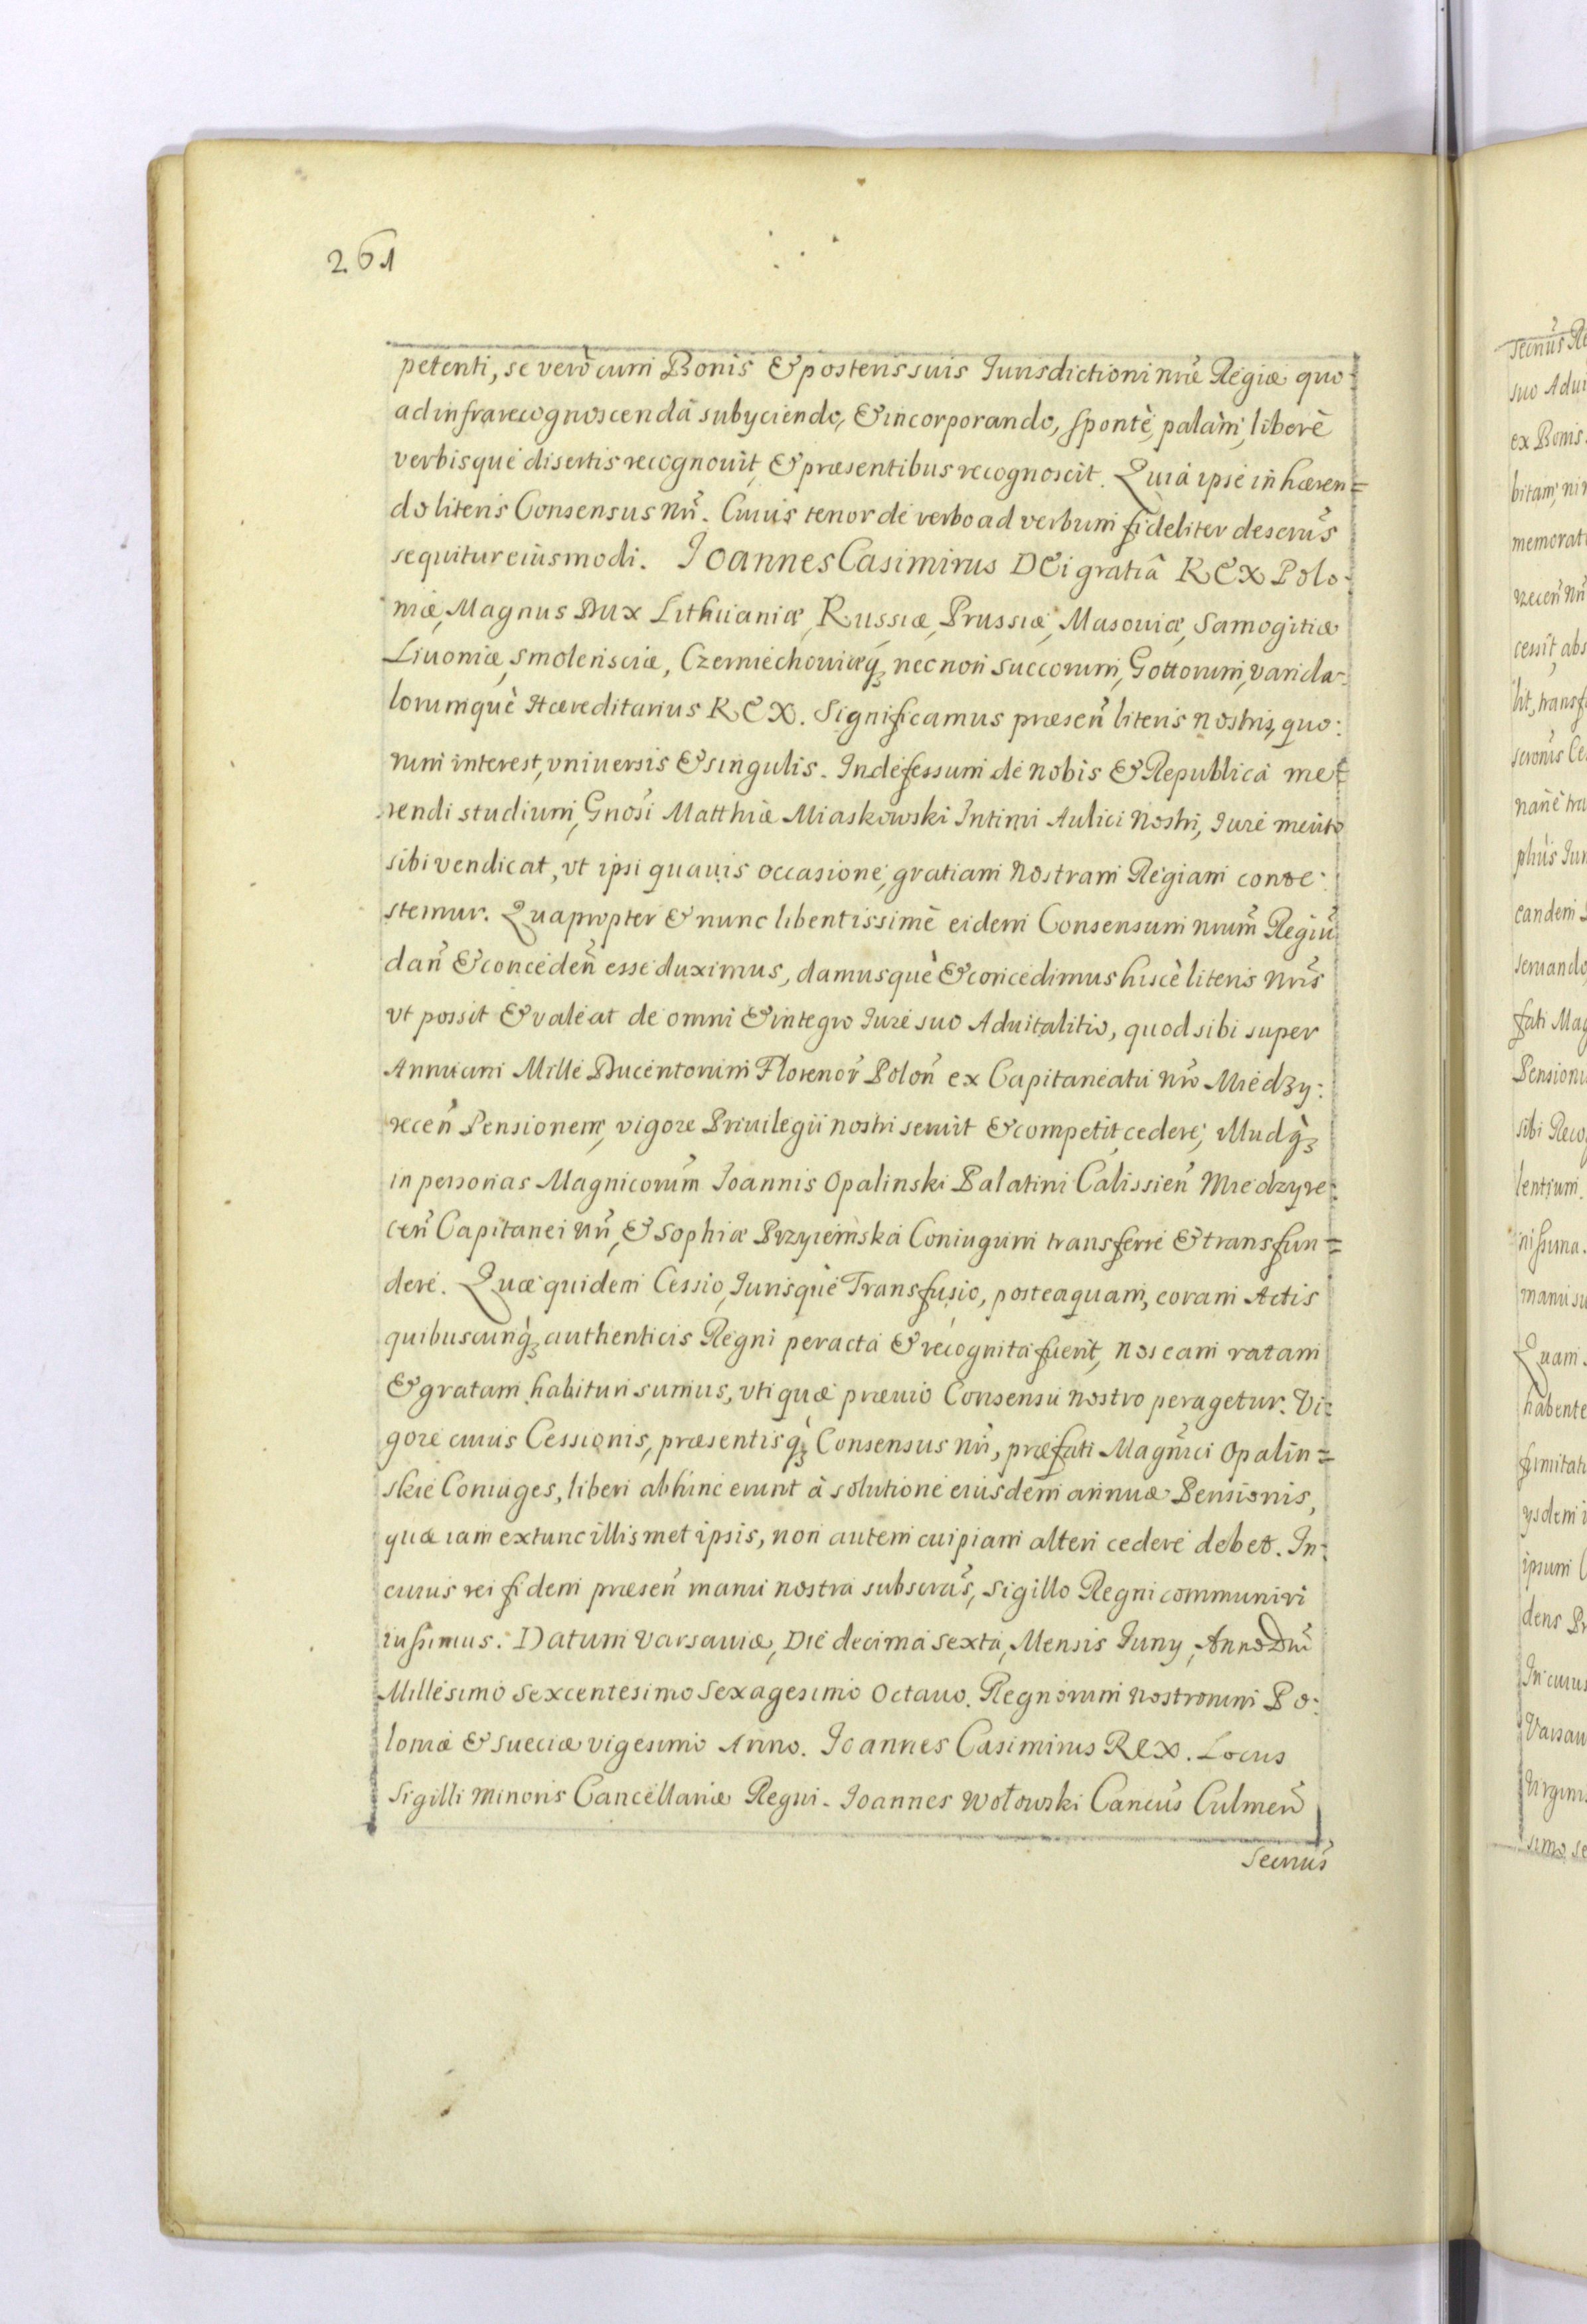 261
petenti, se verò cum Bonis & posteris suis Iurisdictioni nrae Regiae quo
ad infrarecognoscenda subyciendo, & incorporando, spontè, palàm, liberè
verbisque disertis recognouit, & praesentibus recognoscit. Quia ipse inhaeren=
do literis Consensus nri. Cuius tenor de verbo ad verbum fideliter descrus
sequitur eiusmodi. Ioannes Casimirus DEi gratiâ REX Polo:
niae, Magnus Dux Lithuaniae, Russiae, Prussiae, Masouiae, Samogitiae
Liuoniae, Smolensciae, Czerniechouiaeq, necnon Succorum, Gottorum, Vanda-
lorumquè Haereditarius REX. Significamus presen literis nostris, quo:
rum interest, vniuersis & singulis. Indefessum de nobis & Republica me=
rendi studium, Gnosi Matthiae Miaskowski Intimi Aulici Nostri, Iure merito
sibi vendicat, vt ipsi quauis occasione, gratiam Nostram Regiam conte:
stemur. Quapropter & nunc libentissimè eidem Consensum nrum Regiu
dan & conceden esse duximus, damusquè & concedimus hiscè literis nris
vt possit & valeat de omni & integro Iure suo Aduitalitio, quod sibi super
Annuam Mille Ducentorum Florenor Polon ex Capitaneatu nro Miedzy:
recen Pensionem, vigore Priuilegii nostri seruit & competit, cedere, illudq
in personas Magnicorum Ioannis Opalinski Palatini Calissien Miedzyre:
cen Capitanei nri, & Sophiae Przyiemska Coniugum transferre & transfun=
dere. Quae quidem Cessio, Iurisquè Transfusio, posteaquam, coram Actis
quibuscunq authenticis Regni peracta & recognita fuerit, nos eam ratam
& gratam habituri sumus, vti quae praeuio Consensu nostro peragetur. Vi:
gore cuius Cessionis, praesentisq Consensus nri, praefati Magnici Opalin=
skie Coniuges, liberi abhinc erunt à solutione eiusdem annuae Pensionis,
quae iam extunc illismet ipsis, non autem cuipiam alteri cedere debet. In:
cuius rei fidem praesen manu nostra subscras, Sigillo Regni communiri
iussimus. Datum Varsauiae, Die decima sexta, Mensis Iuny, Anno Dni
Millesimo Sexcentesimo Sexagesimo Octauo. Regnorum Nostrorum Po:
loniae & Sueciae vigesimo Anno. Ioannes Casimirus Rex. Locus
Sigilli Minoris Cancellariae Regni. Ioannes Wołowski Cancus Culmen
Secrius